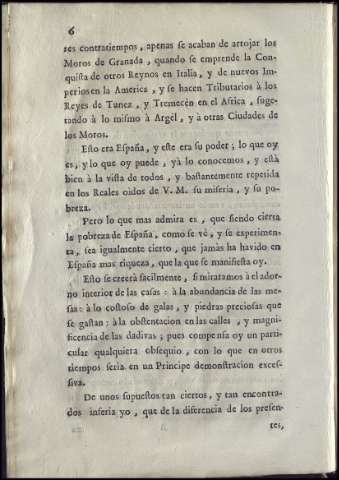 6
ses contratiempos, apenas se acaban de arrojar los
Moros de Granada, quando se emprende la Con-
quista de otros Reynos en Italia, y de nuevos Im-
perios en la America, y se hacen Tributarios à los
Reyes de Tunez, y Tremecèn en el Africa, suge-
tando à lo mismo à Argel, y à otras Ciudades de
los Moros.
Esto era España, y este era su poder; lo que oy
es, y lo que oy puede, yà lo conocemos, y està
bien à la vista de todos, y bastantemente repetida
en los Reales oìdos de V. M. su miseria, y su po-
breza.
Pero lo que mas admira es, que siendo cierta
la pobreza de España, como se vè, y se experimen-
ta, sea igualmente cierto, que jamàs ha havido en
España mas riqueza, que la que se manifiesta oy.
Esto se creerà facilmente, si miraramos à el ador-
no interior de las casas: à la abundancia de las me-
sas: à lo costoso de galas, y piedras preciosas que
se gastan: à la obstentacion en las calles, y magni-
ficencia de las dadivas; pues compensa oy un parti-
cular qualquiera obsequio, con lo que en otros
tiempos seria en un Principe demonstracion exces-
siva.
De unos supuestos tan ciertos, y tan encontra-
dos inferia yo, que de la diferencia de los presen-
tes,